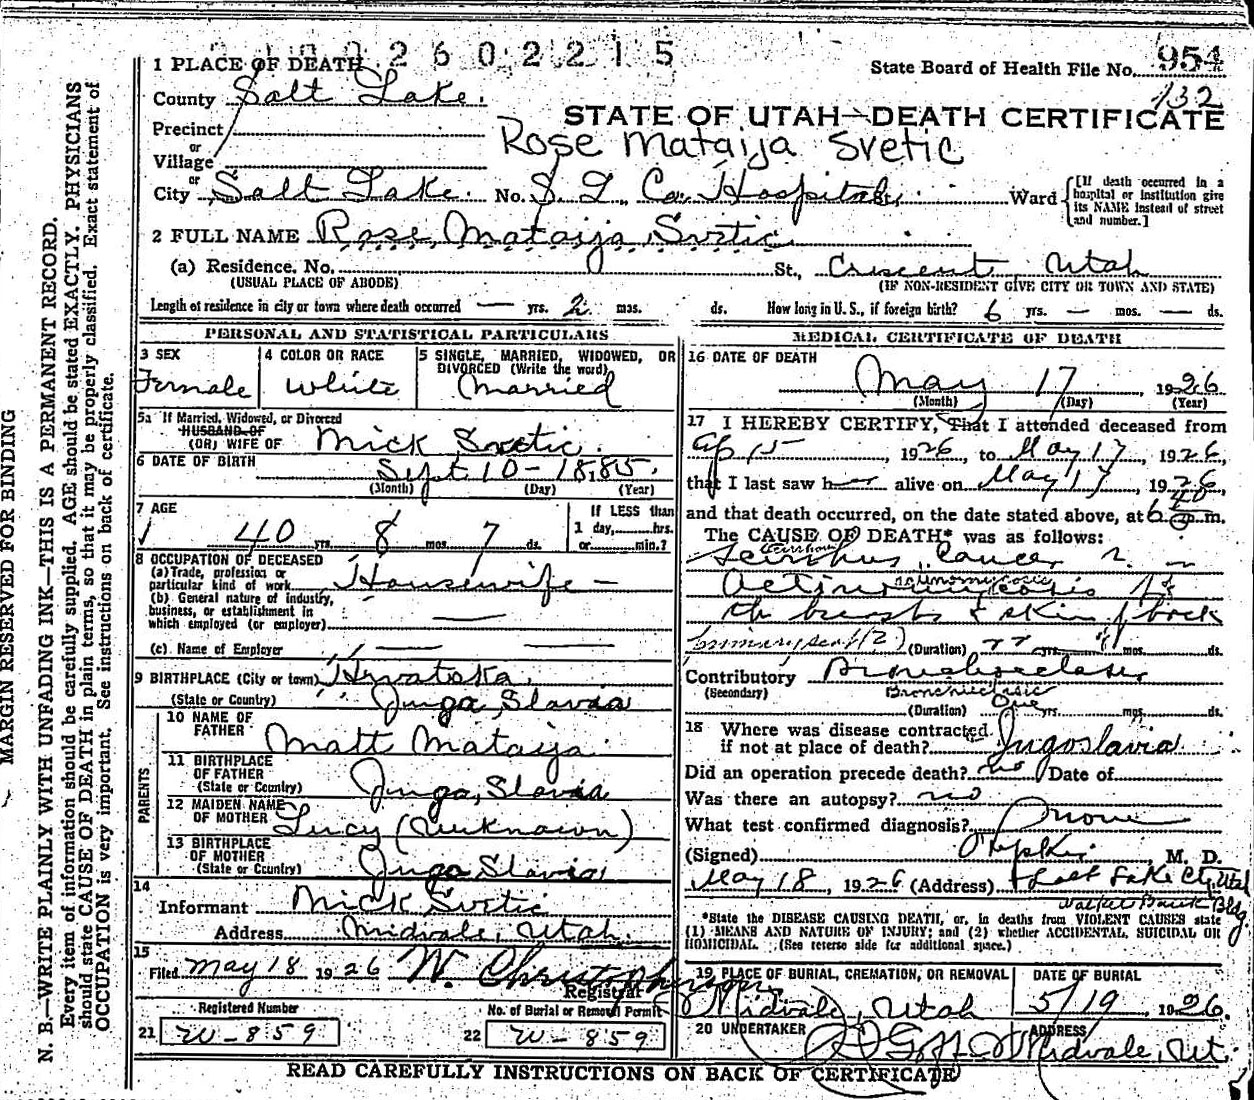 2602215
1 PLACE OF DEATH
State Board of Health File No. 954
132
County Salt Lake.
STATE OF UTAH—DEATH CERTIFICATE
Precinct
or
Village
Rose Mataija Svetic
or
City Salt Lake. No. S. L. Co. Hospital. Ward
[If death occurred in a hospital or institution give its NAME instead of street and number.]
2 FULL NAME Rose Mataija Svetic
(a) Residence. No. St., Crescent, Utah
(USUAL PLACE OF ABODE) (IF NON-RESIDENT GIVE CITY OR TOWN AND STATE)
Length of residence in city or town where death occurred — yrs. 2 mos. ds. How long in U. S., if foreign birth? 6 yrs. — mos. — ds.
PERSONAL AND STATISTICAL PARTICULARS
3 SEX
Female
4 COLOR OR RACE
White
5 SINGLE, MARRIED, WIDOWED, OR DIVORCED (Write the word)
Married
5a If Married, Widowed, or Divorced
HUSBAND OF
(OR) WIFE OF Mick Svetic.
6 DATE OF BIRTH Sept 10 - 1885.
(Month) (Day) (Year)
7 AGE
40 yrs. 8 mos. 7 ds.
If LESS than
1 day, hrs.
or min.?
8 OCCUPATION OF DECEASED
(a) Trade, profession or
particular kind of work Housewife —
(b) General nature of industry,
business, or establishment in
which employed (or employer) —
(c) Name of Employer — —
9 BIRTHPLACE (City or town) Hrvatska.
(State or Country) Juga, Slavia
PARENTS
10 NAME OF FATHER Matt Mataija
11 BIRTHPLACE OF FATHER Juga, Slavia
(State or Country)
12 MAIDEN NAME OF MOTHER Lucy (Unknown)
13 BIRTHPLACE OF MOTHER Juga Slavia
(State or Country)
14
Informant Mick Svetic
Address Midvale, Utah.
15
Filed May 18 1926 W. Christopherson
Registrar
Registered Number No. of Burial or Removal Permit
21 W-859 22 W-859
MEDICAL CERTIFICATE OF DEATH
16 DATE OF DEATH
May 17 1926
(Month) (Day) (Year)
17 I HEREBY CERTIFY, That I attended deceased from
Ap 15, 1926, to May 17, 1926,
that I last saw her alive on May 17, 1926,
and that death occurred, on the date stated above, at 6 40 m.
The CAUSE OF DEATH* was as follows:
Scirrhus Cancer
Actinomycosis of
the breasts & skin of back
(primary seat (?) (Duration) yrs. mos. ds.
Contributory
(Secondary) Bronchiectasis
(Duration) One yrs. mos. ds.
18 Where was disease contracted
if not at place of death? Jugoslavia
Did an operation precede death? no Date of
Was there an autopsy? no
What test confirmed diagnosis? None
(Signed) M. D.
May 18, 1926 (Address) Salt Lake City, Utah
Walker Bank Bldg.
*State the DISEASE CAUSING DEATH, or, in deaths from VIOLENT CAUSES state
(1) MEANS AND NATURE OF INJURY; and (2) whether ACCIDENTAL, SUICIDAL OR
HOMICIDAL. (See reverse side for additional space.)
19 PLACE OF BURIAL, CREMATION, OR REMOVAL DATE OF BURIAL
Midvale, Utah 5/19 1926.
20 UNDERTAKER ADDRESS
Midvale, Ut.
READ CAREFULLY INSTRUCTIONS ON BACK OF CERTIFICATE
MARGIN RESERVED FOR BINDING
N. B.—WRITE PLAINLY WITH UNFADING INK—THIS IS A PERMANENT RECORD.
Every item of information should be carefully supplied. AGE should be stated EXACTLY. PHYSICIANS
should state CAUSE OF DEATH in plain terms, so that it may be properly classified. Exact statement of
OCCUPATION is very important. See instructions on back of certificate.